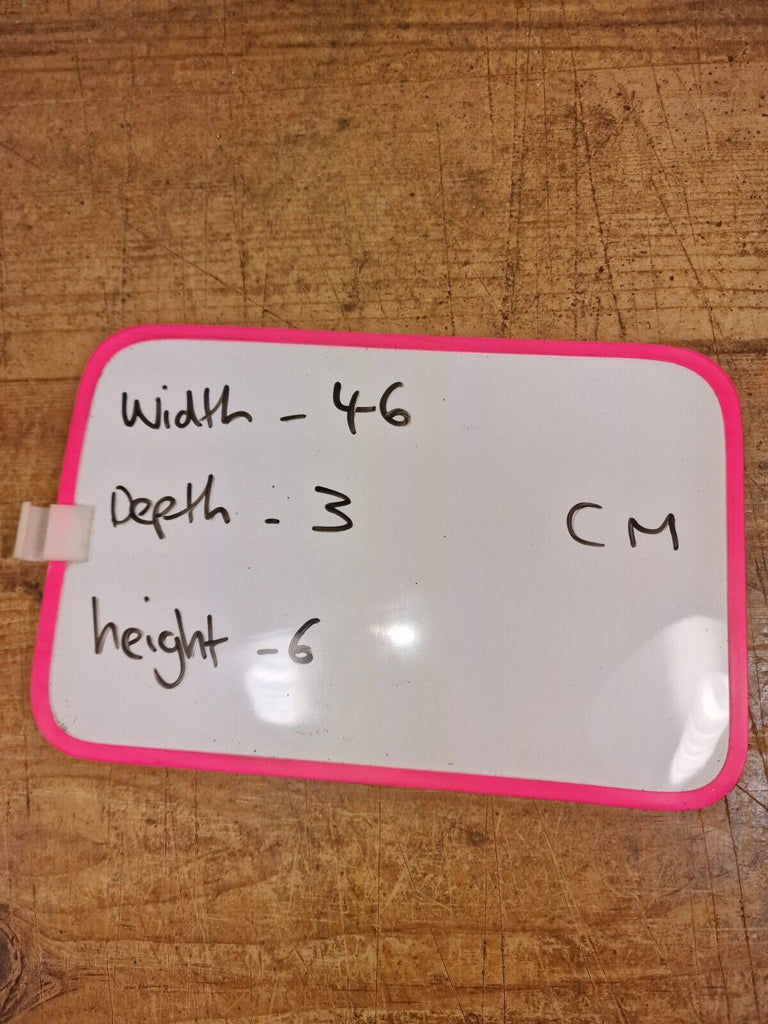 Width - 4-6
Depth - 3
CM
height - 6